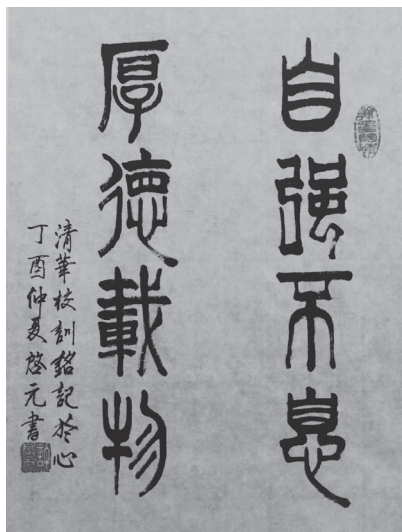 自强不息
厚德載物
清華校訓銘記於心
丁酉仲夏啓元書